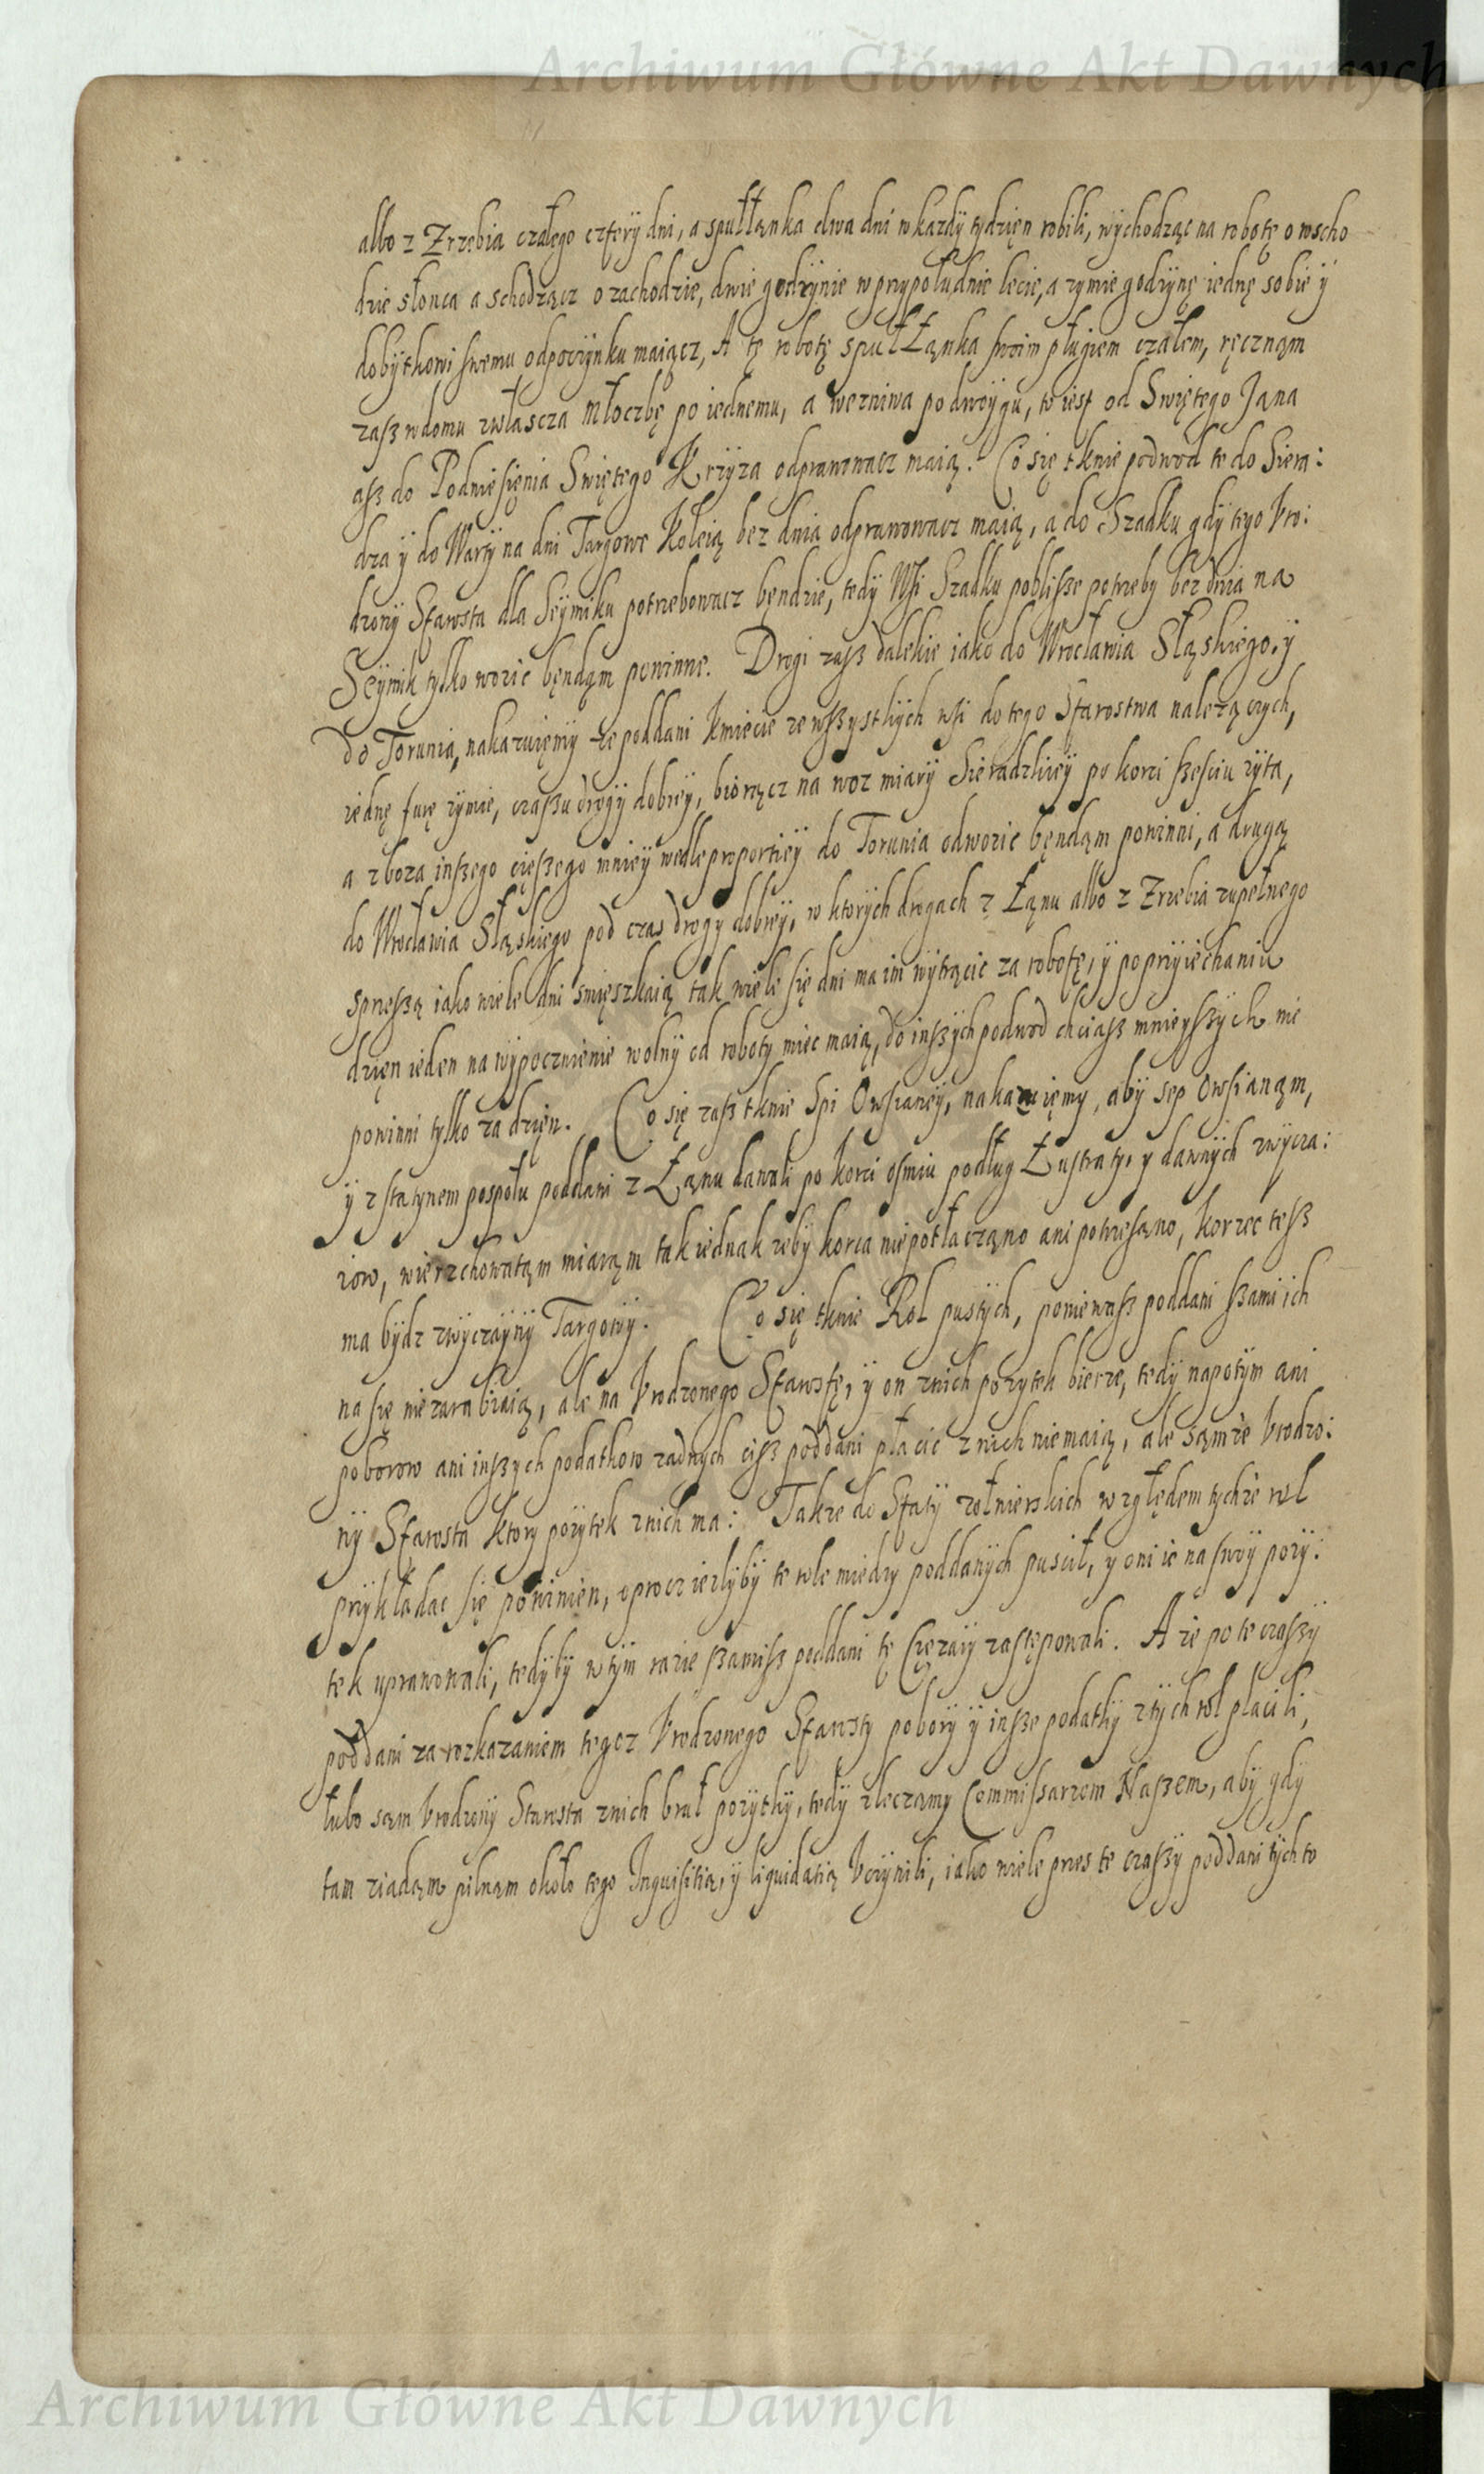 Archiwum Główne Akt Dawnych
albo z Zrzebia czałego cztery dni, a spułłąnka dwa dni w kazdy tydzięn robili, wychodząc na robotę o wscho
dzie słonca a schodząęz o zachodzie, dwie godzynie w przypołudnie lecie, a zymie godzynę iednę sobie ÿ
dobytkowi swemu odpoczynku maiącz, A tę robotę spułŁąnka swoim pługiem czałem, ręcznąm
zasz w domu zwłascza Młoczbę po iednemu, a we zniwa po dwoygu, to iest od Swiętego Jąna
asz do Podniesięnia Swiętego Krzyza odprawowacz maią. Co się tknie podwod te do Siera:
dza ÿ do Warty na dni Targowe Koleią bez dnia odprawowacz maią, a do Szadku gdy tego Vro:
dzony Starosta dla Seymiku potrzebowacz będzie, tedy Wsi Szadku poblisse potrzeby bez dnia na
Seymik tylko wozic będąm powinne. Drogi zasz dalekie iako do Wrocławia Sląskiego, ÿ
do Torunia, nakazuięmy ze poddani kmiecie ze wszystkich wsi do tego Starostwa nalezączych,
iednę furę zymie, czasu drogy dobrey, biorącz na woz miary Sieradzkiey po korci szesciu zyta,
a zboza inszego cięszego mniey wedle proportiey do Torunia odwozic będąm powinni, a drugą
do Wrocławia Sląskiego pod czas drogy dobrey, w ktorych drogach z Łąnu albo z Zrzebia zupełnego
sprzeszą iako wiele dni zmięszkaią tak wiele się dni ma im wytrącic za robotę, ÿ po przyiechaniu
dzięn ieden na wypocznienie wolny od roboty miec maią, do inszych podwod chciasz mnieyszych nie
powinni tylko za dzięn. Co się zasz tknie Spi Owsianey, nakazuięmy, aby sep Owsianąm,
ÿ z statynem pospołu poddani z Łąnu dawali po korci osmiu podług Łustraty, y dawnych zwycza:
iow, wierzchowatąm miarąm tak iednak zeby korca nie potłacząno ani potrzesąno, korzec tesz
ma bydz zwyczayny Targowy. Co się tknie Rol pustych, poniewasz poddani szami ich
na się nie zarabiaią, ale na Vrodzonego Starostę, ÿ on z nich pozytek bierze, tedy napotym ani
poborow ani inszych podatkow zadnych cisz poddani płacic z nich nie maią, ale sąm ze Vrodzo:
ny Starosta ktory pozytek z nich ma: Takze do Staty zołnierskich względem tychze rol
przykładac się powinien, oprocz iezliby te role miedzy poddanych puscił, y oni ie na swoy pozy:
tek uprawowali, tedyby w tym razie szamisz poddani te Cięzary zastępowali. A ze po te czaszy
poddani za rozkazaniem tegoz Vrodzonego Starosty pobory ÿ insze podatky z tych rol płacili,
lubo sąm Vrodzony Starosta z nich brał pozytky, tedy zleczamy Commissarzom Naszem, aby gdy
tam ziadąm pilnąm około tego Inquisitią, ÿ liquidatią Vczynili, iako wiele przes te czaszy poddani tych to
Archiwum Główne Akt Dawnych